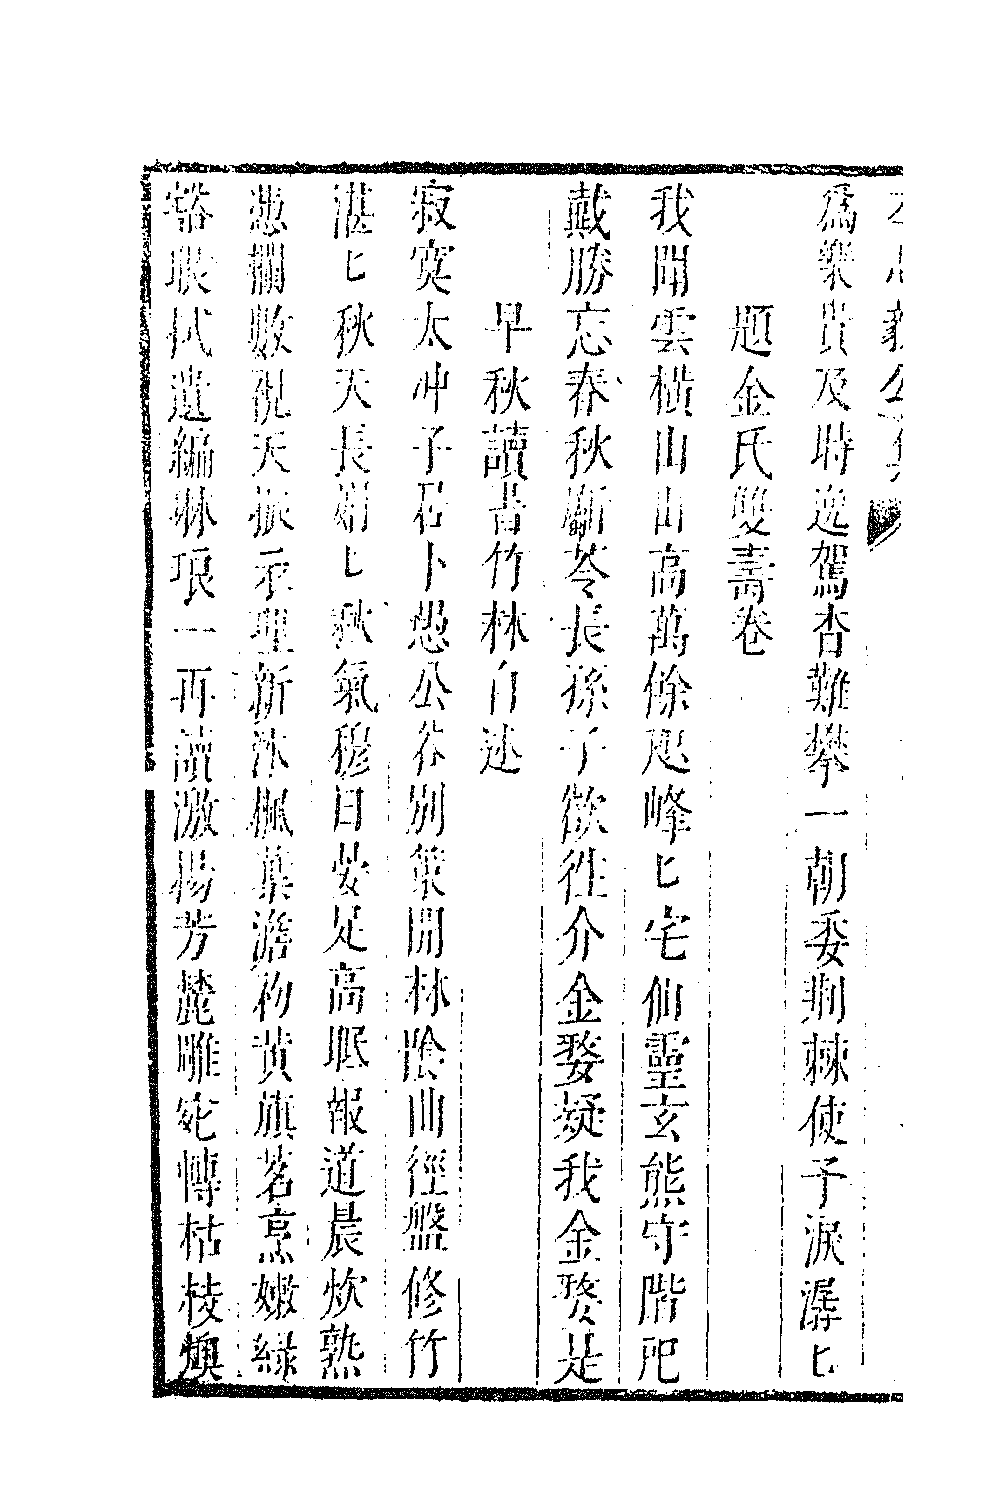 爲樂貴及時逸駕杳難攀一朝委荆棘使予淚潺匕
題金氏雙壽卷
我聞雲橫山山高萬餘咫峰匕宅仙靈玄熊守階戺
戴勝忘春秋斸苓長孫子欲徃介金婺疑我金婺是
早秋讀書竹林自述
寂寞太冲子居卜愚公谷別業開林陰曲徑盤修竹
湛匕秋天長娟匕秋氣穆日晏足高眠報道晨炊熟
憑欄敞視天振衣理新沐楓葉澹初黄旗茗烹嫩緑
拭遺編琳琅一再讀激楊芳麓雕宛轉枯枝燠